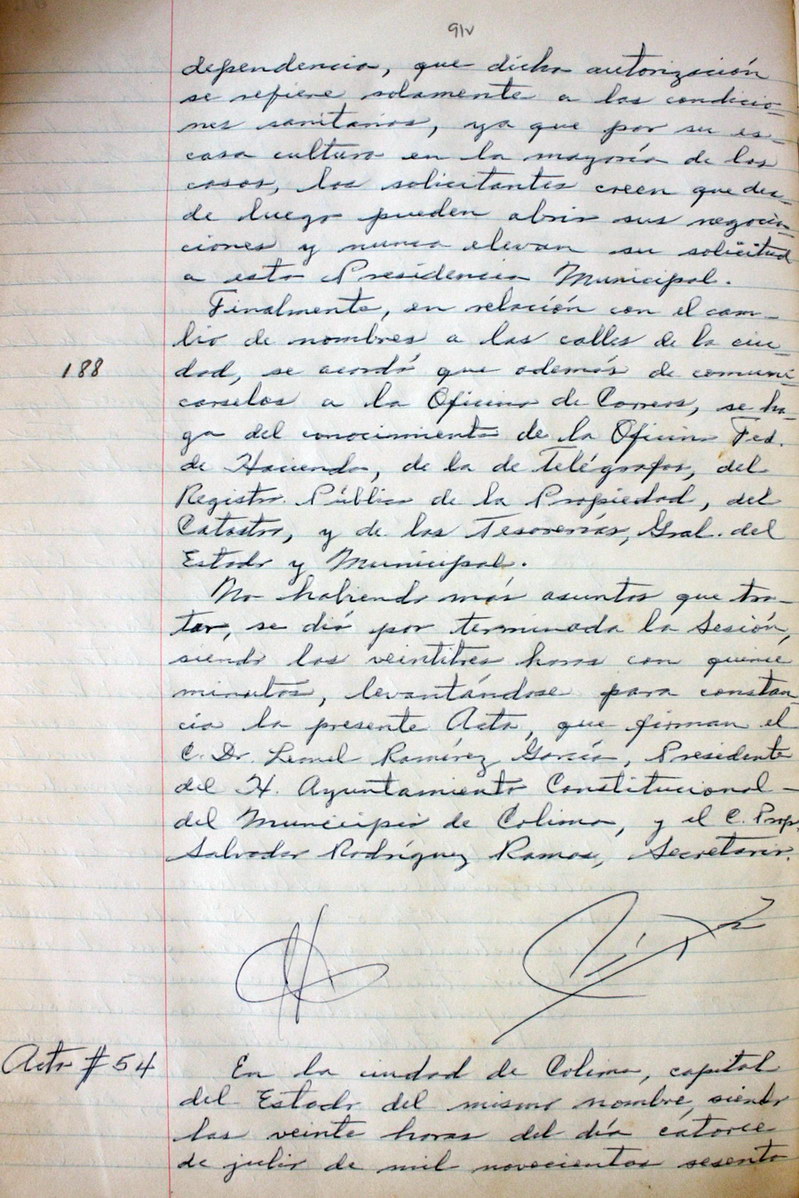 91v
dependencia, que dicha autorización
se refiere solamente a las condicio-
nes sanitarias, ya que por su es-
casa cultura en la mayoría de los
casos, los solicitantes creen que des-
de luego pueden abrir sus negocia-
ciones y nunca elevan su solicitud
a esta Presidencia Municipal.
Finalmente, en relación con el cam-
bio de nombres a las calles de la ciu-
188
dad, se acordó que además de comuni-
carselos a la Oficina de Correos, se ha-
ga del conocimiento de la Oficina Fed.
de Hacienda, de la de Telégrafos, del
Registro Público de la Propiedad, del
Catastro, y de las Tesorerías, Gral. del
Estado y Municipal.
No habiendo más asuntos que tra-
tar, se dió por terminada la Sesión,
siendo las veintitres horas con quince
minutos, levantándose para constan-
cia la presente Acta, que firman el
C. Dr. Leonel Ramírez García, Presidente
del H. Ayuntamiento Constitucional -
del Municipio de Colima, y el C. Prof.
Salvador Rodríguez Ramos, Secretario.
Acta # 54
En la ciudad de Colima, capital
del Estado del mismo nombre, siendo
las veinte horas del día catorce
de julio de mil novecientos sesenta